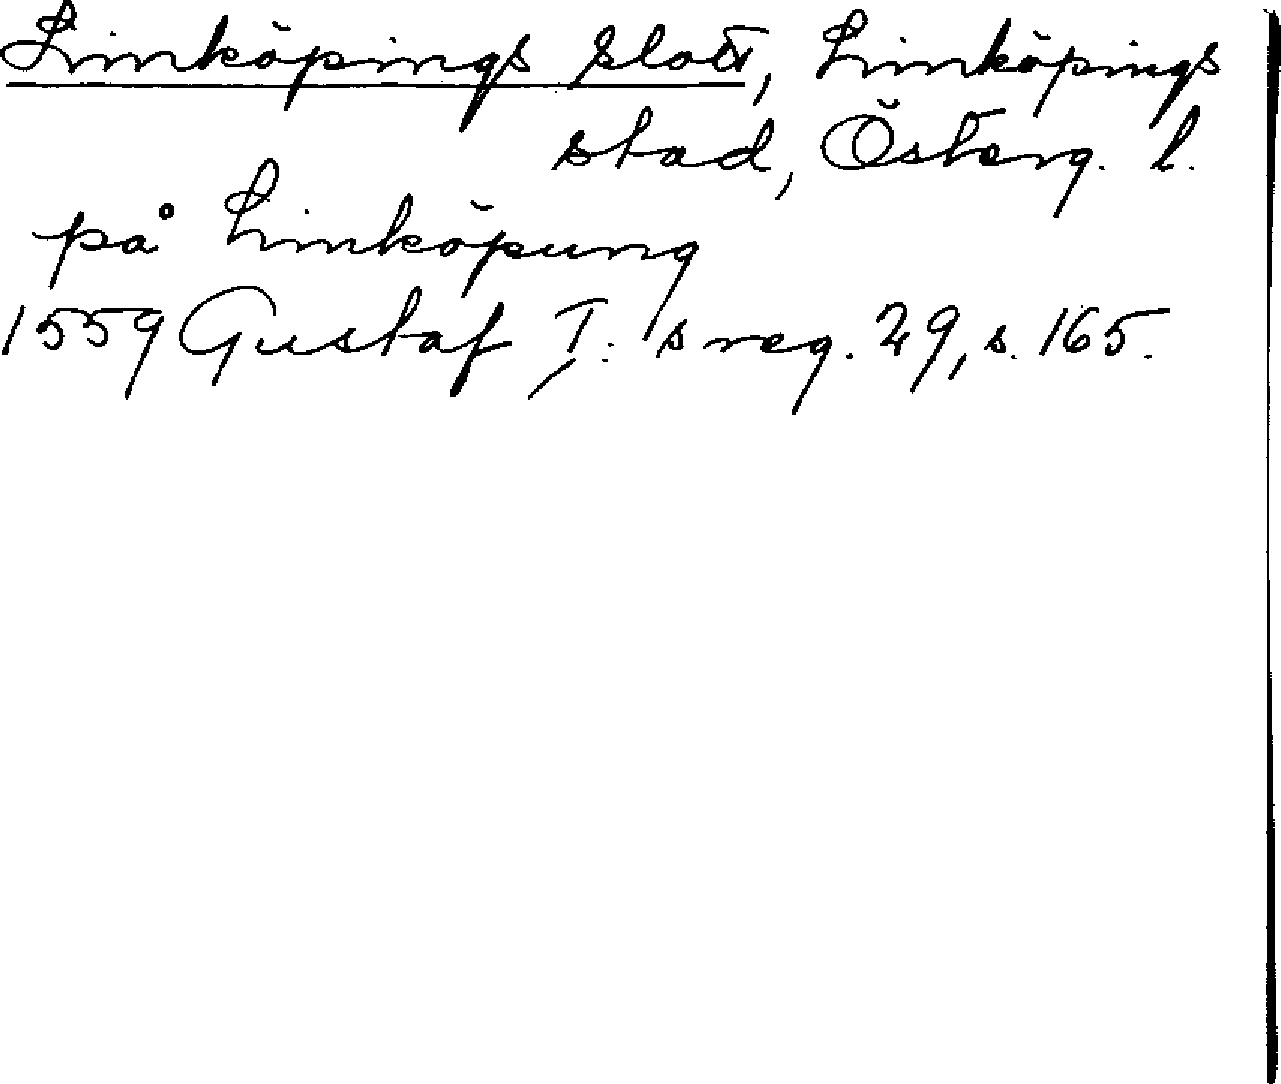 Linköpings slott, Linköpings
stad, Österg. l.
på Linköpung
1559 Gustaf I:s reg. 29, s. 165.